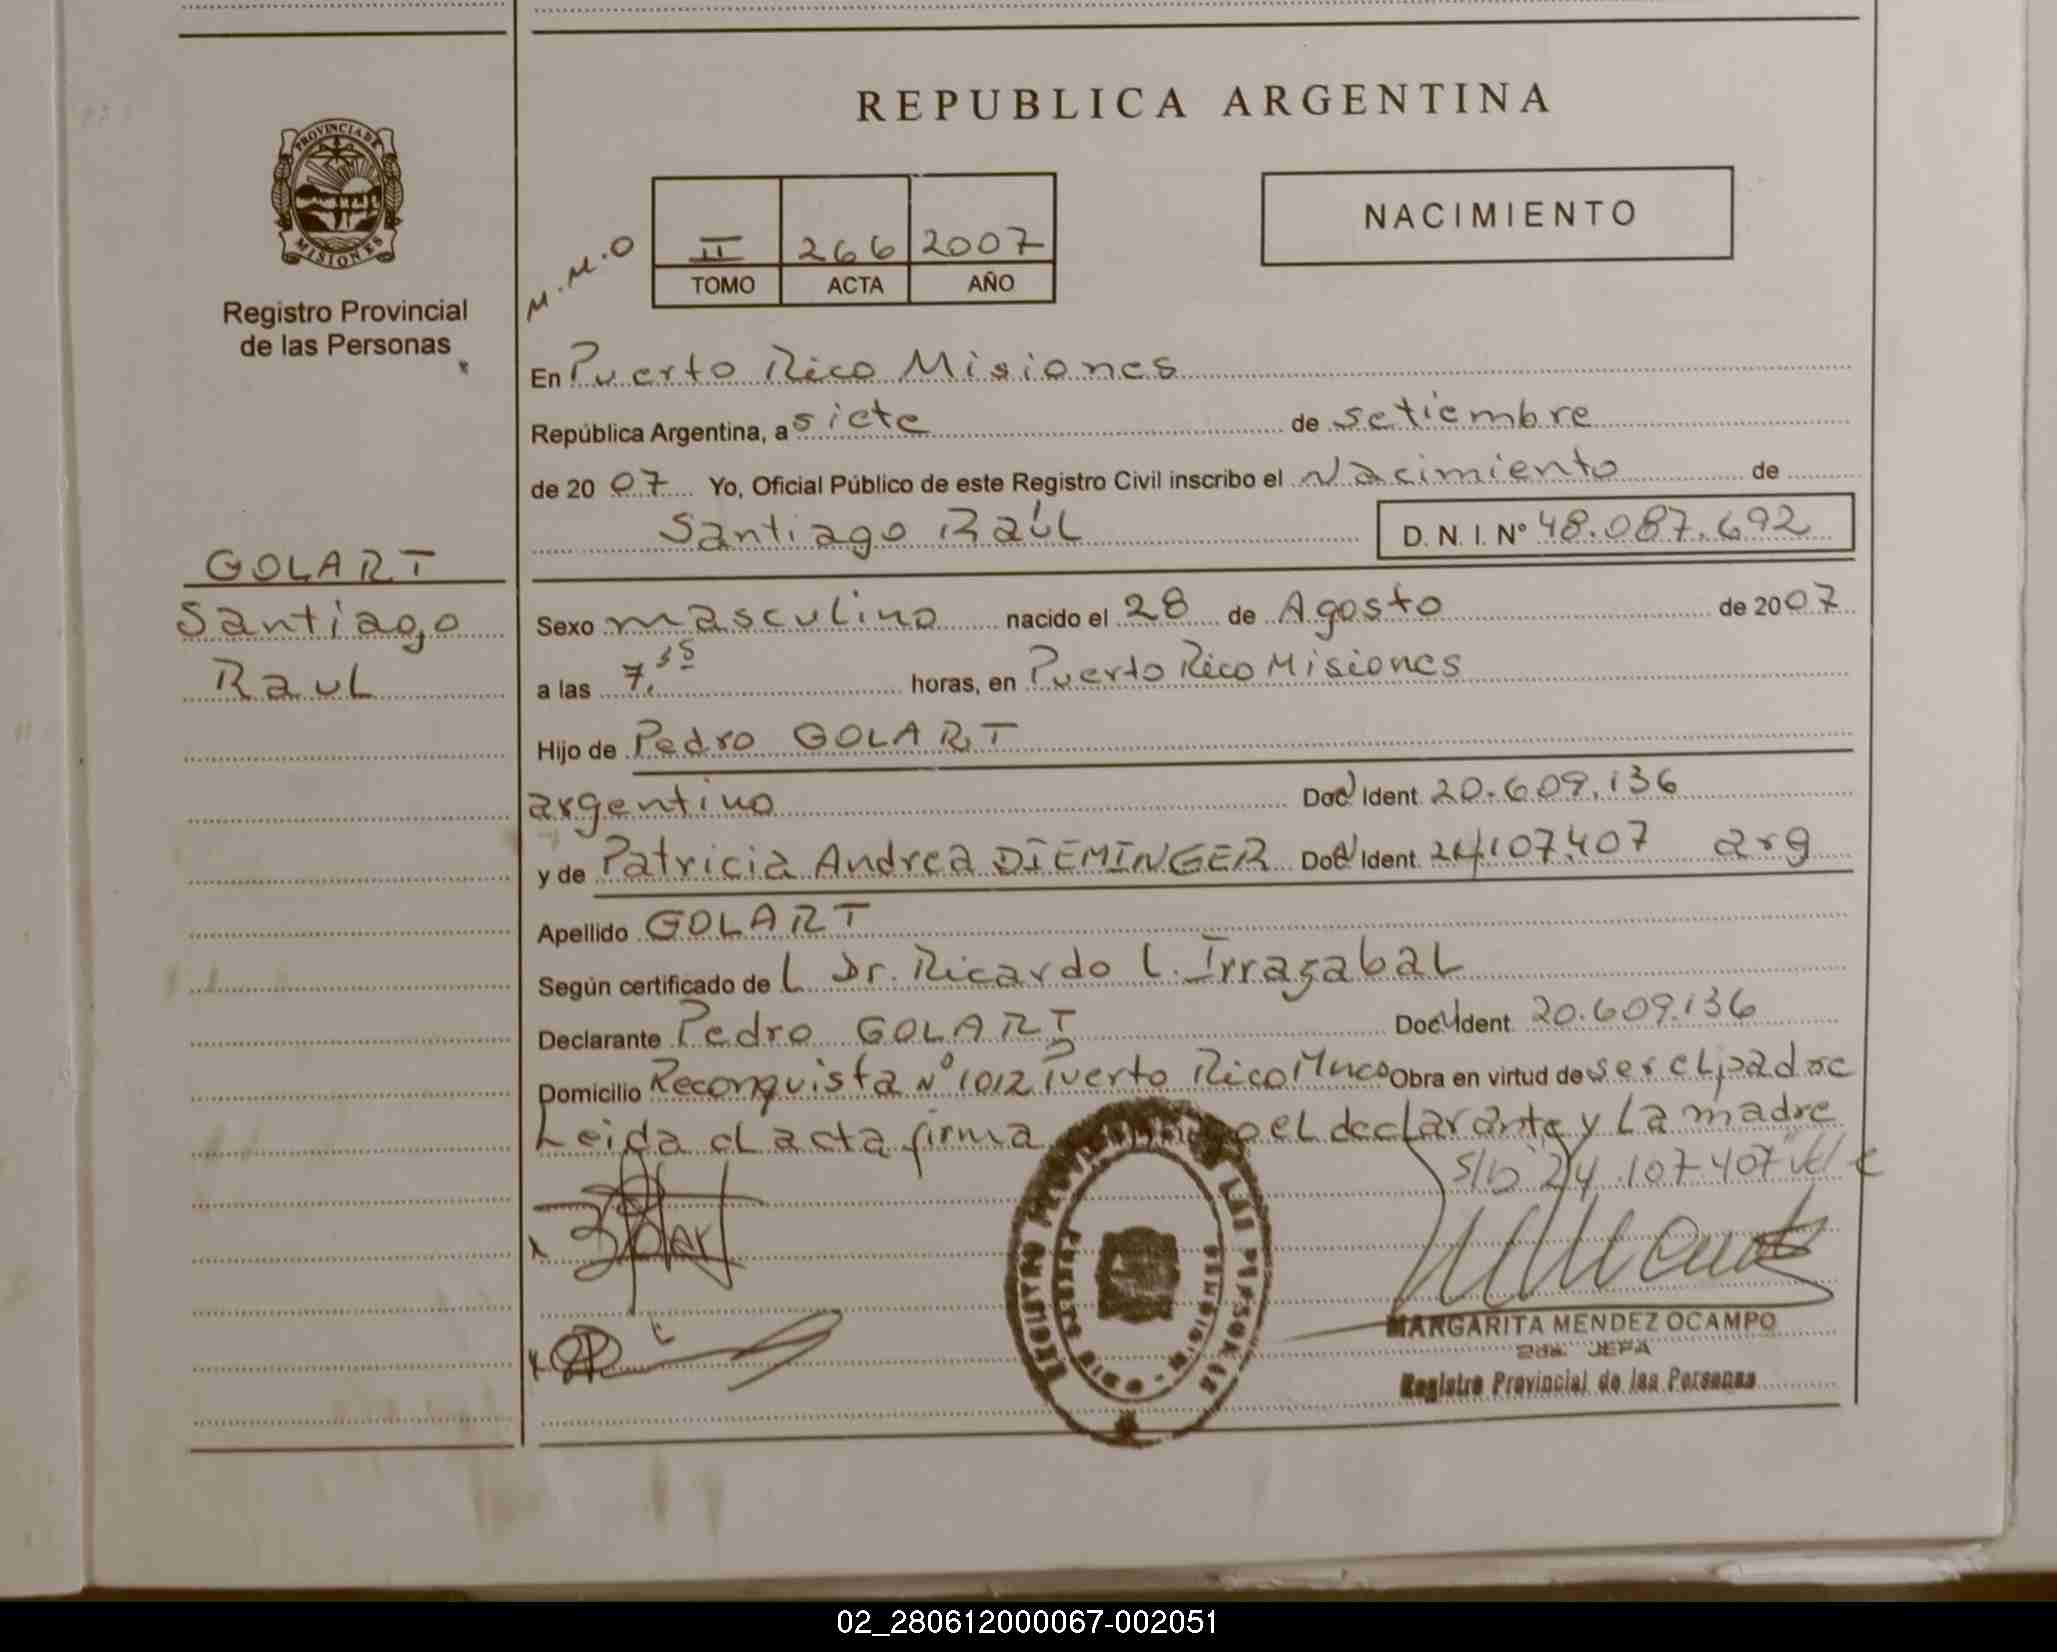 REPUBLICA ARGENTINA
PROVINCIA DE
MISIONES
Registro Provincial
de las Personas
M.M.O
II 266 2007
TOMO ACTA AÑO
NACIMIENTO
En Puerto Rico Misiones
República Argentina, a siete de setiembre
de 2007 Yo, Oficial Público de este Registro Civil inscribo el Nacimiento de
Santiago Raúl D. N. I. Nº 48.087.692
GOLART
Santiago
Raul
Sexo masculino nacido el 28 de Agosto de 2007
a las 7.35 horas, en Puerto Rico Misiones
Hijo de Pedro GOLART
argentino Doc Ident. 20.609.136
y de Patricia Andrea DIEMINGER Doc Ident. 24.107.407 arg
Apellido GOLART
Según certificado del Dr. Ricardo L. Irrazabal
Declarante Pedro GOLART Doc Ident. 20.609.136
Domicilio Reconquista Nº 1012 Puerto Rico Mnes Obra en virtud de ser el padre
Leida el acta firma el declarante y la madre
24.107.407
REGISTRO PROVINCIAL DE LAS PERSONAS
PUERTO RICO MISIONES
MARGARITA MENDEZ OCAMPO
2da. JEFA
Registro Provincial de las Personas
02_280612000067-002051